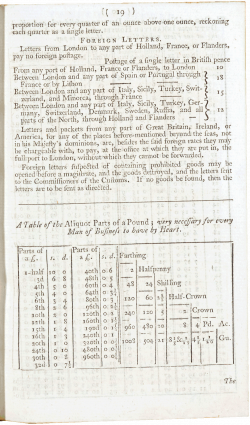 ( 29 )
proportion for every quarter of an ounce above one ounce, reckoning
each quarter as a single letter.
FOREIGN LETTERS.
Letters from London to any part of Holland, France, or Flanders,
pay no foreign postage.
Postage of a single letter in British pence
From any port of Holland, France or Flanders, to London 10
Between London and any part of Spain or Portugal through
France or by Lisbon 18
Between London and any part of Italy, Sicily, Turkey, Swit-
zerland, and Minorca, through France 15
Between London and any part of Italy, Sicily, Turkey, Ger-
many, Switzerland, Denmark, Sweden, Russia, and all
parts of the North, through Holland and Flanders 12
Letters and packets from any part of Great Britain, Ireland, or
America, for any of the places before-mentioned beyond the seas, not
in his Majesty's dominions, are, besides the said foreign rates they may
be chargeable with, to pay, at the office at which they are put in, the
full port to London, without which they cannot be forwarded.
Foreign letters suspected of containing prohibited goods may be
opened before a magistrate, and the goods destroyed, and the letters sent
to the Commissioners of the Customs. If no goods be found, then the
letters are to be sent as directed.
A Table of the Aliquot Parts of a Pound; very necessary for every
Man of Business to have by Heart.
Parts of a £. s. d. Parts of a £. s. d. Farthing
1-half 10 0 40th 0 6 2 Halfpenny
3d 6 8
4th 5 0 48 24 Shilling
5th 4 0
6th 3 4 120 60 Half-Crown
8th 2 6
240 120 5 2 Crown
960 480 20 8 4 Pd. Ac.
1008 504 21 Gu.
24th 0 10
30th 0 8 960th
32d 0 7½
The